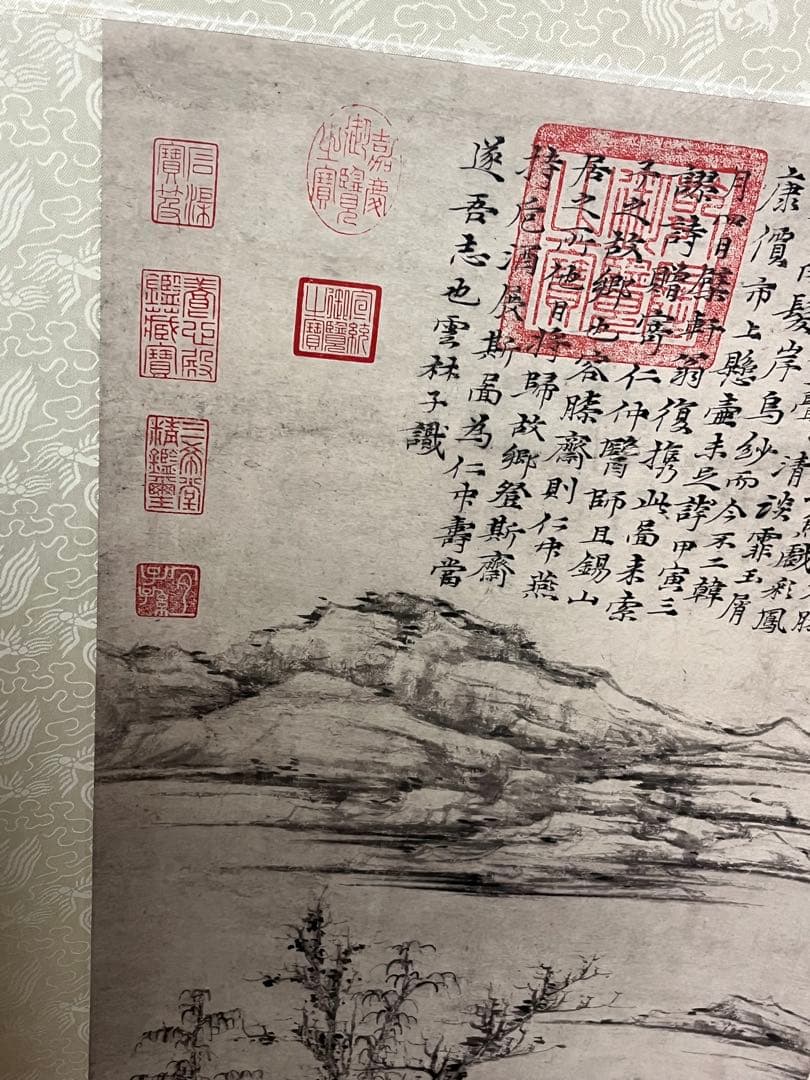 戲彩鳳
清談霏玉屑
髮岸烏紗而今不二韓
康價市上懸壺未足誇甲寅三
月四日檗軒翁復携此圖来索
謬詩贈寄仁仲醫師且錫山
予之故鄉也容膝齋則仁仲燕
居之所他日将歸故鄉登斯齋
持巵酒展斯圖為仁仲壽當
遂吾志也雲林子識
乾隆御覽之寶
嘉慶御覽之寶
宣統御覽之寶
石渠寶笈
養心殿鑑藏寶
三希堂精鑑璽
宜子孫